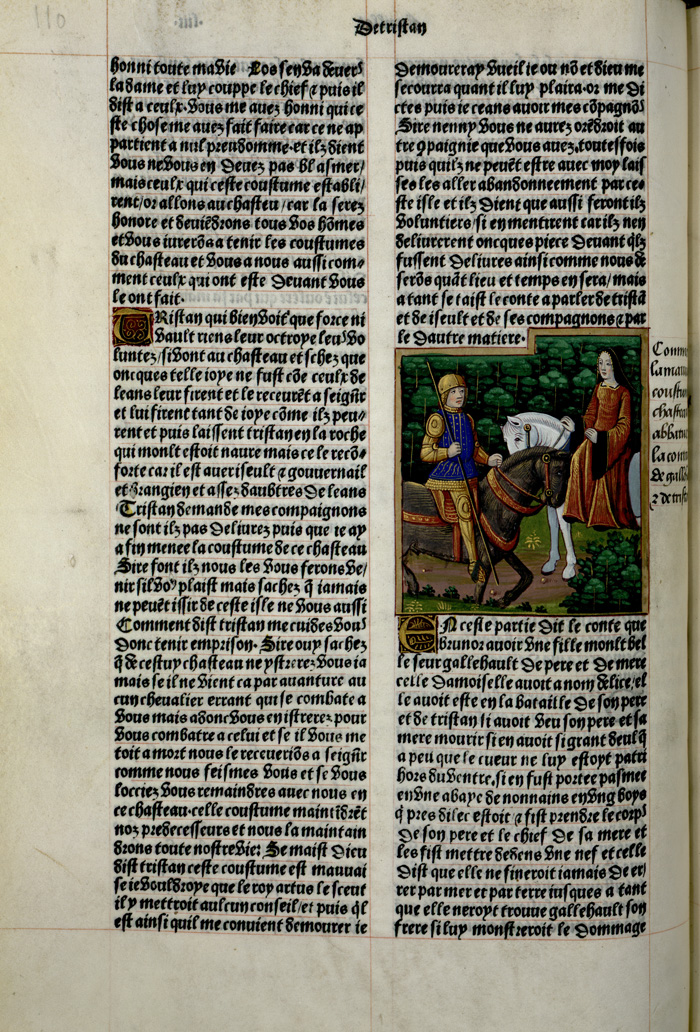 110
De tristan
honni toute ma vie Lors sen va deuers
la dame et luy couppe le chief & puis il
dist a ceulx. vous me auez honni qui ce
ste chose me auez fait faire car ce ne ap
partient a nul preudomme. et ilz dient
vous ne vous en deuez pas blasmer/
mais ceulx qui ceste coustume establi/
rent/or allons au chasteau/car la serez
honore et deuiēdrons tous vos hōmes
et vous iurerōs a tenir les coustumes
du chasteau et vous a nous aussi com-
ment ceulx qui ont este deuant vous
le ont fait.
TRistan qui bien voit que force ni
vault riens leur octroye leur vo
luntez/si vont au chasteau et schez que
oncques telle ioye ne fust cōe ceulx de
leans leur firent et le receurēt a seignr
et lui firent tant de ioye cōme ilz peu/
rent et puis laissent tristan en la roche
qui moult estoit naure mais ce le recō/
forte car il est auec iseult & gouuernail
et brangien et assez daubtres de leans
Tristan demande mes compaignons
ne sont ilz pas deliurez puis que ie ay
a fin menee la coustume de ce chasteau
Sire font ilz nous les vous ferons ve/
nir sil voꝰ plaist mais sachez q̄ iamais
ne peuēt issir de ceste isle ne vous aussi
Comment dist tristan me cuides vous
donc tenir en prison. Sire ouy sachez
q̄ de cestuy chasteau ne ystrerez vous ia
mais se il ne vient ca par auanture au
cun cheualier errant qui se combate a
vous mais adonc vous en istrerez pour
vous combatre a celui et se il vous me
toit a mort nous le recueuriōs a seignr
comme nous feismes vous et se vous
locciez vous remaindres auec nous en
ce chasteau. celle coustume maintīdrēt
noz predecesseurs et nous la maintain
drons toute nostre vie: Se maist dieu
dist tristan ceste coustume est mauuai
se ie vouldroye que le roy artus le sceut
il y mettroit aulcun conseil/et puis ql
est ainsi quil me conuient demourer ie
demoureray vueil ie ou nō et dieu me
secourra quant il luy plaira. or me di
ctes puis ie ceans auoir mes cōpagnōs
Sire nenny vous ne aurez orēdroit au
tre ꝯpaignie que vous auez, toutesfois
puis quilz ne peuēt estre auec moy lais
ses les aller abandonneement par ces-
te isle et ilz dient que aussi feront ilz
voluntiers/si en mentirent car ilz nen
deliurerent oncques piece deuant qlz
fussent deliures ainsi comme nous de
serōs quāt lieu et temps en sera/mais
a tant se taist le conte a parler de tristā
et de iseult et de ses compagnons & par
le dautre matiere.
Comme
la mau
coustu
chaste
abbatu
la com
de gall
& de trist
EN ceste partie dit le conte que
brunor auoir vne fille moult bel
le seur gallehault de pere et de mere
celle damoiselle auoit a nom delice/el
le auoit este en la bataille de son pere
et de tristan si auoit veu son pere et sa
mere mourir si en auoit si grant deul q̄
a peu que le cueur ne luy estoyt parti
hors du ventre, si en fust portee pasmee
en vne abaye de nonnains en vng boys
q̄ pres dilec estoit & fist prendre le corps
de son pere et le chief de sa mere et
les fist mettre dedens vne nef et celle
dist que elle ne fineroit iamais de er/
rer par mer et par terre iusques a tant
que elle neroyt trouue gallehault son
frere si luy monstreroit le dommage